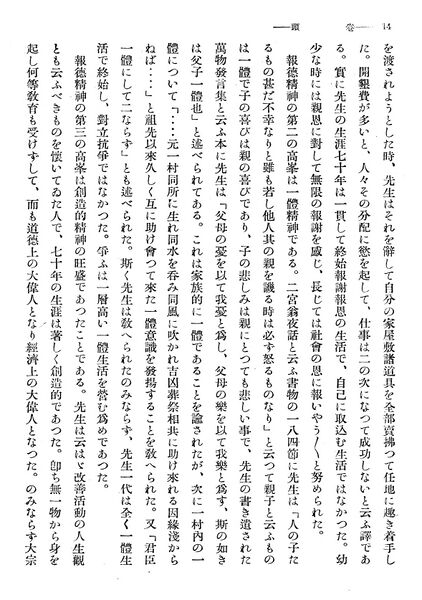 14 ── 卷 頭 ──
を渡されようとした時、先生はそれを辭して自分の家屋敷諸道具を全部賣拂つて任地に趣き着手し
た。開墾費が多いと、人々その分配に慾を起して、仕事は二の次になつて成功しないと云ふ譯であ
る。實に先生の生涯七十年は一貫して終始報謝報恩の生活で、自己に取込む生活ではなかつた。幼
少な時には親恩に對して無限の報謝を感じ、長じては社會の恩に報いやう〳〵と努められた。
報德精神の第二の高峯は一體精神である。二宮翁夜話と云ふ書物の一八四節に先生は「人の子た
るもの甚だ不幸なりと雖も若し他人其の親を譏る時は必ず怒るものなり」と云つて親子と云ふもの
は一體で子の喜びは親の喜びであり、子の悲しみは親にとつても悲しい事で、先生の書き遺された
萬物發言集と云ふ本に先生は「父母の憂を以て我憂と爲し、父母の樂を以て我樂と爲す、斯の如き
は父子一體也」と述べられてある。これは家族的に一體であることを諭されたが、次に一村內の一
體について「‥‥元一村同所に生れ同水を呑み同風に吹かれ吉凶葬祭相共に助け來れる因緣淺から
ねば‥‥」と祖先以來久しく互に助け會つて來た一體意識を發揚することを敎へられた。又「君臣
一體にして二ならず」とも述べられた。斯く先生は敎へられたのみならず、先生一代は全く一體生
活で終始し、對立抗爭ではなかつた。爭ふは一層高い一體生活を營む爲めであつた。
報德精神の第三の高峯は創造的精神の旺盛であつたことである。先生は云はゞ改善活動の人生觀
とも云ふべきものを懷いてゐた人で、七十年の生涯は著しく創造的であつた。卽ち無一物から身を
起し何等敎育も受けずして、而も道德上の大偉人となり經濟上の大偉人となつた。のみならず大宗